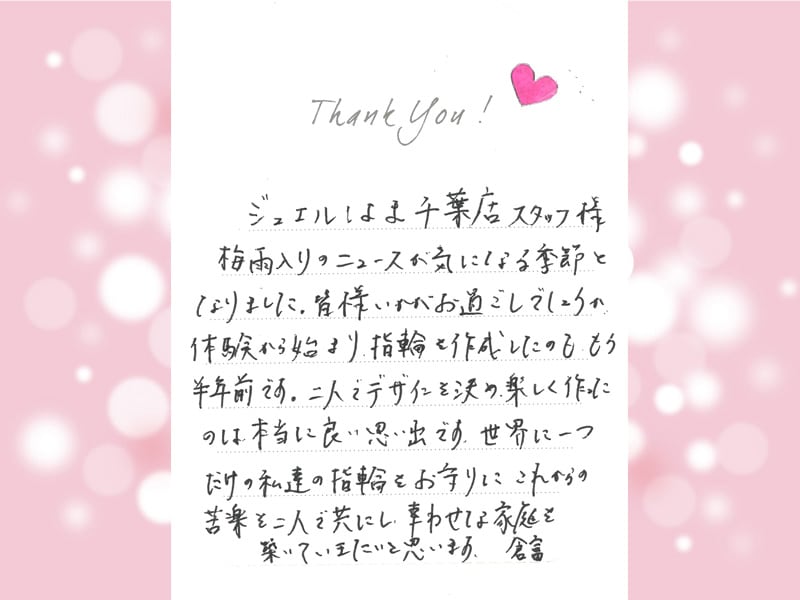 Thank You!
ジュエルしま千葉店スタッフ様
梅雨入りのニュースが気になる季節と
なりました。皆様いかがお過ごしでしょうか。
体験から始まり、指輪を作成したのももう
半年前です。二人でデザインを決め、楽しく作った
のは本当に良い思い出です。世界に一つ
だけの私達の指輪をお守りに これからの
苦楽を二人で共にし、幸わせな家庭を
築いていきたいと思います。